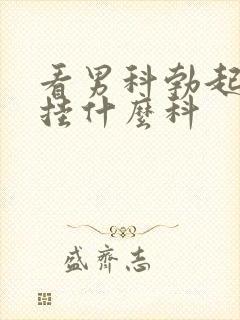 看男科勃起
挂什麼科
盛齊志